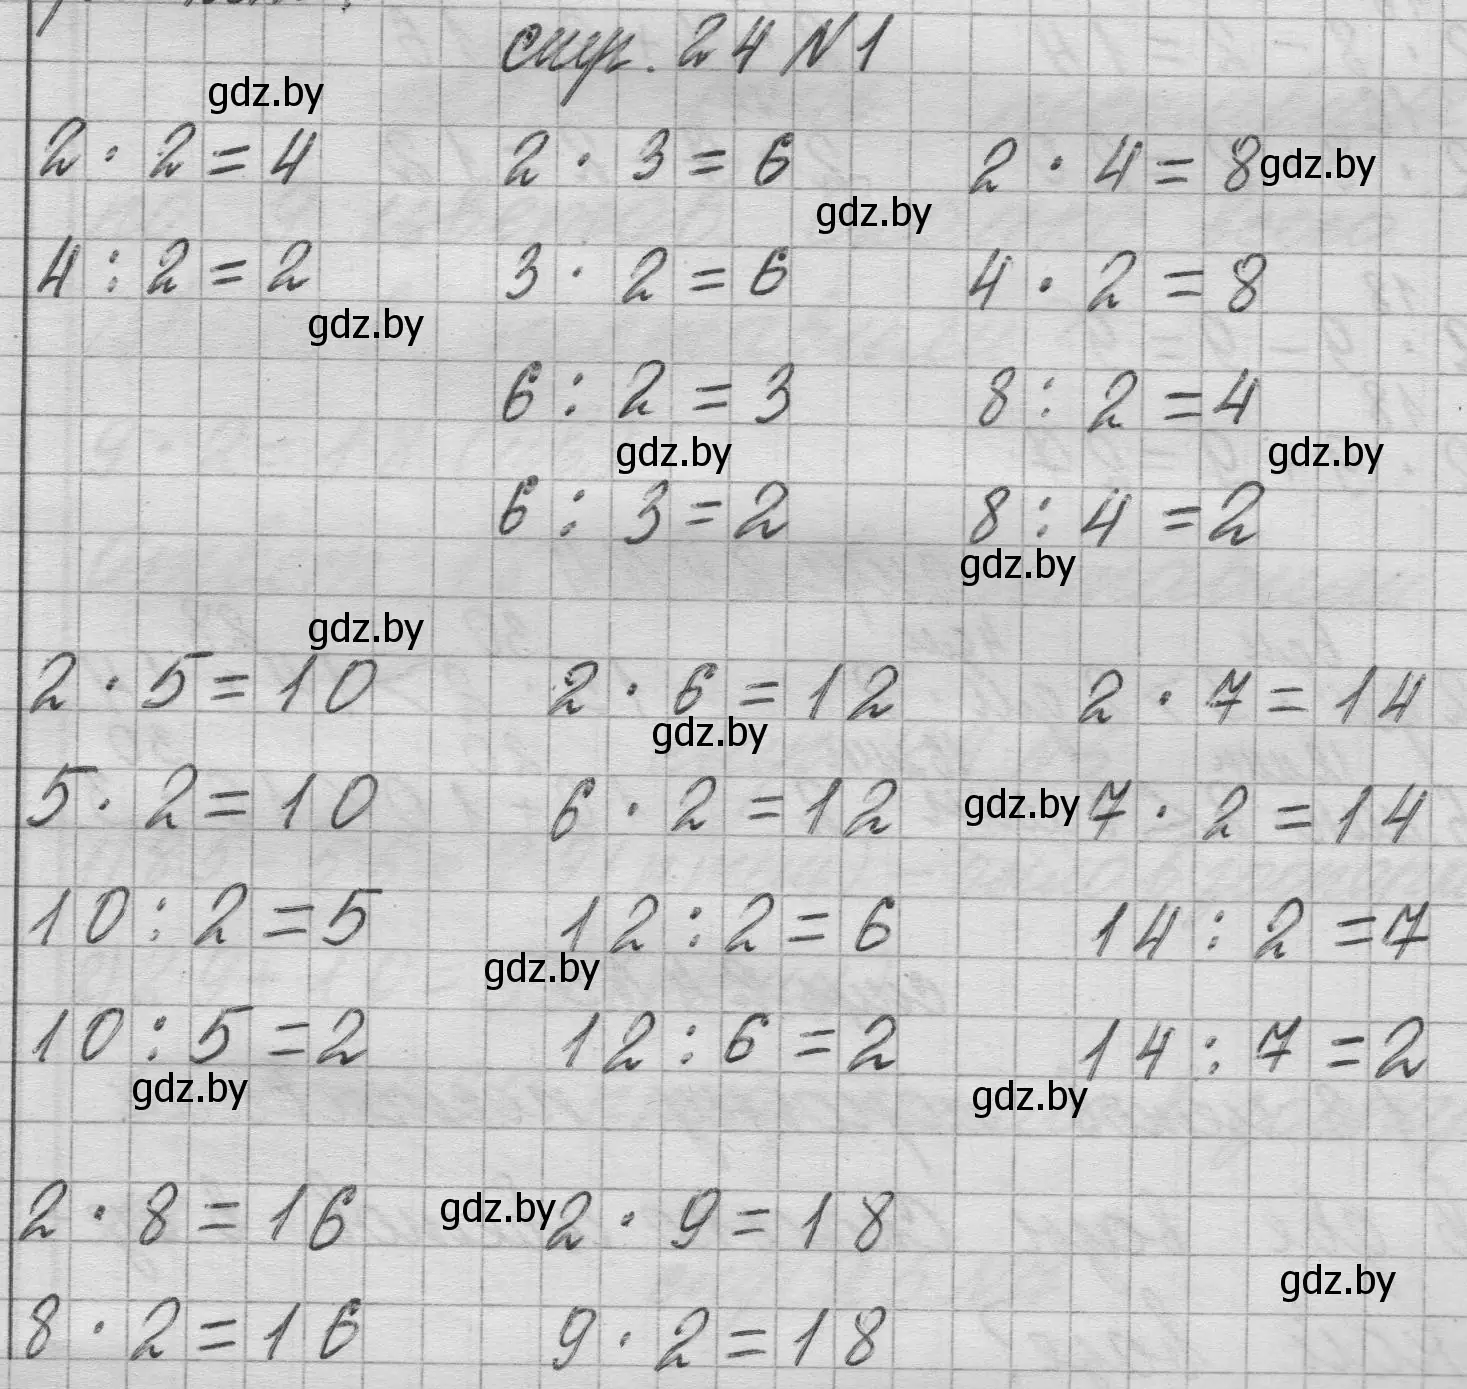 стр. 24 N 1
gdz.by
2 · 2 = 4 2 · 3 = 6 2 · 4 = 8 gdz.by
gdz.by
4 : 2 = 2 3 · 2 = 6 4 · 2 = 8
gdz.by
6 : 2 = 3 8 : 2 = 4
gdz.by gdz.by
6 : 3 = 2 8 : 4 = 2
gdz.by
gdz.by
2 · 5 = 10 2 · 6 = 12 2 · 7 = 14
gdz.by
5 · 2 = 10 6 · 2 = 12 gdz.by 7 · 2 = 14
10 : 2 = 5 12 : 2 = 6 14 : 2 = 7
gdz.by
10 : 5 = 2 12 : 6 = 2 14 : 7 = 2
gdz.by gdz.by
2 · 8 = 16 gdz.by 2 · 9 = 18
gdz.by
8 · 2 = 16 9 · 2 = 18